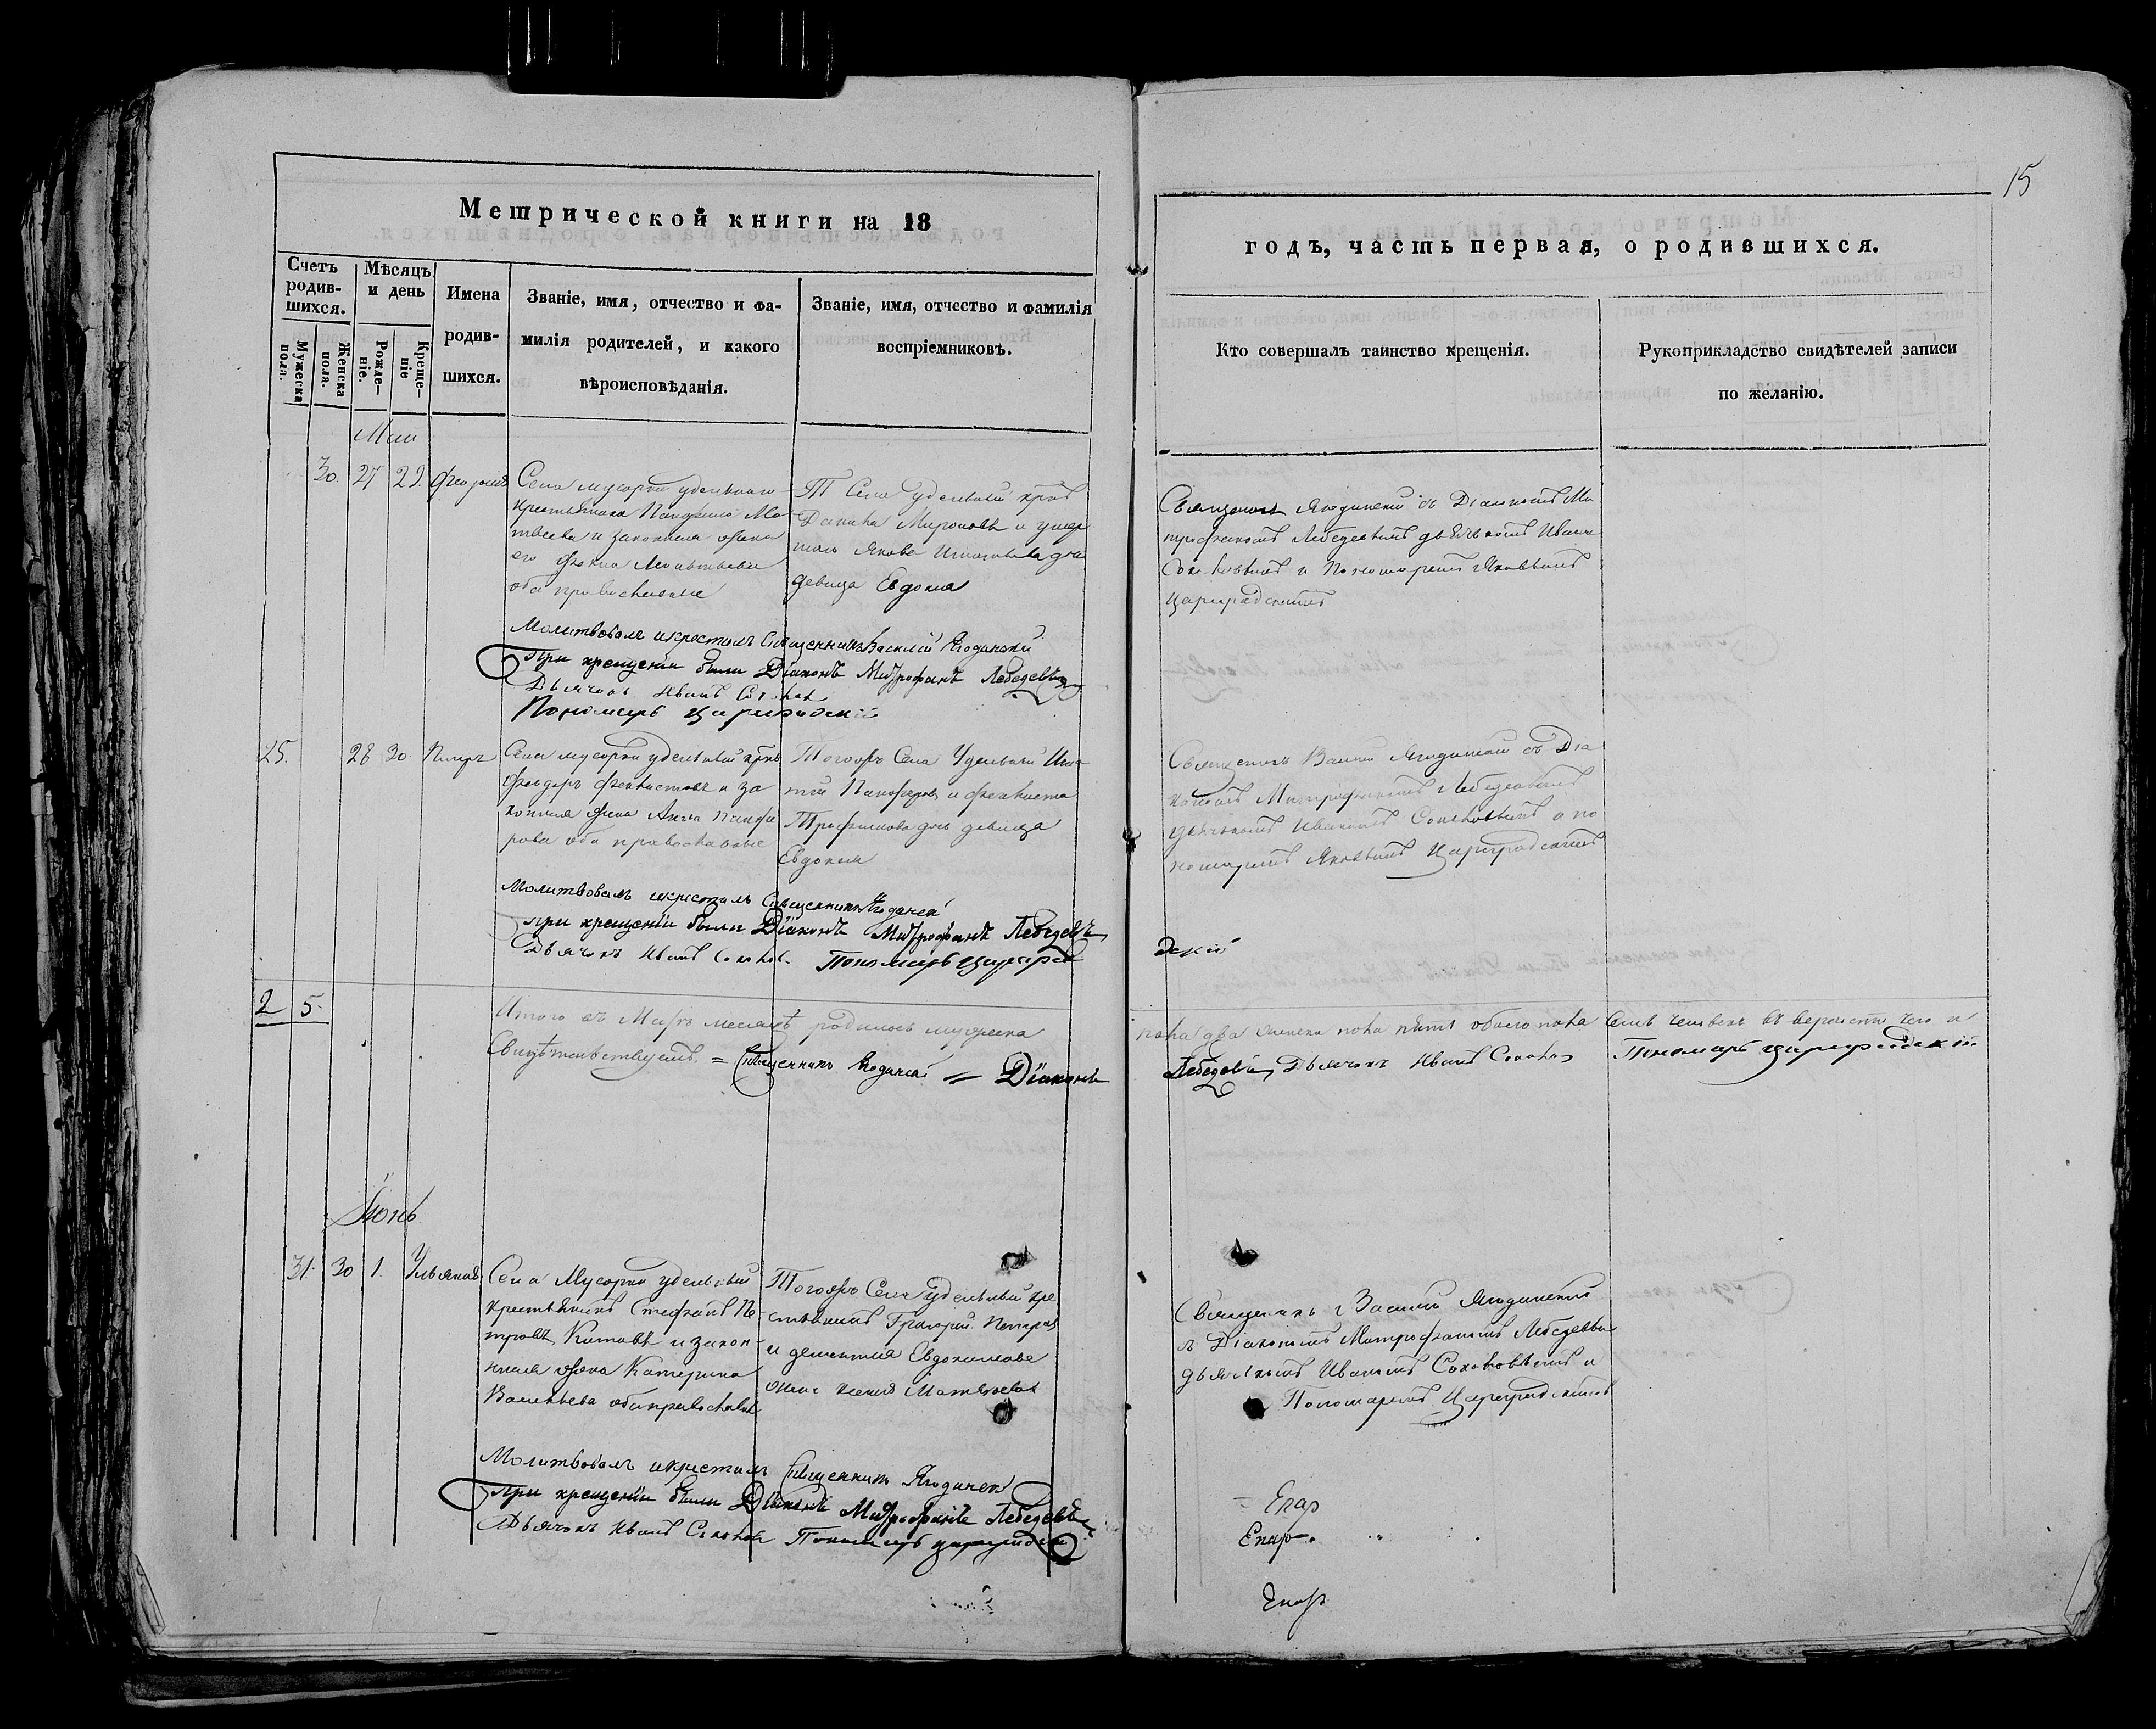 15
Метрической книги на 18
годъ, часть первая, о родившихся.
Счетъ родив-
шихся.
Мужеска пола.
Женска пола.
Мѣсяцъ и день
Рожде-
ніе.
Креще-
ніе
Имена
родив-
шихся.
Званіе, имя, отчество и фа-
милія родителей, и какого
вѣроисповѣданія.
Званіе, имя, отчество и фамилія
воспріемниковъ.
Кто совершалъ таинство крещенія.
Рукоприкладство свидѣтелей записи
по желанію.
Маи
30. 27 29.
Села мусорки удельнаго
крестьянина Ма-
твеева и законная жена
его
оба православные
Т Села удельный
Данила Мироновъ и
Якова дочь
девица Евдокия
Священникъ Ягодинский съ Дiакономъ Ми
трофаномъ Лебедевымъ дьячькомъ Иваном
Соколовымъ и Пономаремъ Яковымъ
Цареградскимъ
Молитвовалъ икрестилъ Священникъ Василiй Ягодинскiй
При крещенiи были Дiаконъ Митрофанъ Лебедевъ
Дьячокъ Иванъ Соколов
Пономарь Цареградскiй
25. 28 30. Петръ
Села мусорки удельный
Феодоръ Феоктистовъ и за
конная жена Анна Панфи
рова оба православные
Тогожъ Села Удельный Игна
тий Панферов и Феоктиста
Трофимова дочь девица
Евдокия
Священникъ Василий Ягодинский съ Дiа
кономъ Митрофаномъ Лебедевымъ
дьячькомъ Иваномъ Соколовымъ и по
номаремъ Яковымъ Цареградскимъ
Молитвовалъ икрестилъ Священникъ Ягодинскiй
При крещенiи были Дiаконъ Митрофанъ Лебедевъ
Дьячокъ Иванъ Соколов. Пономарь Цареград
скiй
2 5.
Итого въ Маiѣ месяцѣ родилось мужеска
пола два женска пола пять обоего пола семь человекъ въ верности чего и
Свидѣтельствуемъ. = Священникъ Ягодинскiй = Дiаконъ
Лебедевъ, Дьячокъ Иванъ Соколов Пономарь Цареградскiй
Iюнь
31. 30 1. Ульяния
Села Мусорки удельный
крестьянинъ Стефанъ Пе
тровъ Китаевъ и закон-
ная жена Катерина
Васильева оба православные
Тогожъ Села удельный кре
стьянинъ Григорий Петров
и Евдокимова
жена Матвеева
Священникъ Василий Ягодинский
съ Дiакономъ Митрофаномъ Лебедевым
дьячькомъ Иваномъ Соколовымъ и
Пономаремъ Цареградскимъ
Молитвовалъ икрестилъ Священникъ Ягодинскiй
При крещенiи были Дiаконъ Митрофанъ Лебедевъ
Дьячокъ Иванъ Соколов Пономарь Цареградскiй
Епар
Епар
Епар